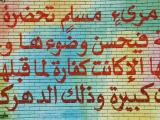 مرىء مسلم تحضره
ة فيحسن وضوءها و
ها إلا كانت كفارة لما قبلها
كبيرة وذلك الدهر ك